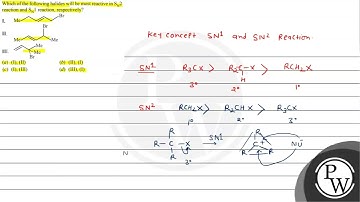 Which of the following halides will be most reactive in SN2
reaction and SN1 reaction, respectively?
I. Me Br
Br
II. Me Me
III. Me Me Br
(a) (I), (II) (b) (II), (I)
(c) (I), (III) (d) (III), (I)
Key concept SN1 and SN2 Reaction.
SN1 R3CX > R2C-X > RCH2X
H
3° 2° 1°
SN2 RCH2X > R2CHX > R3CX
1° 2° 3°
R R
R - C - X SN1 C+ Nu
R 3° R R
N
P
W